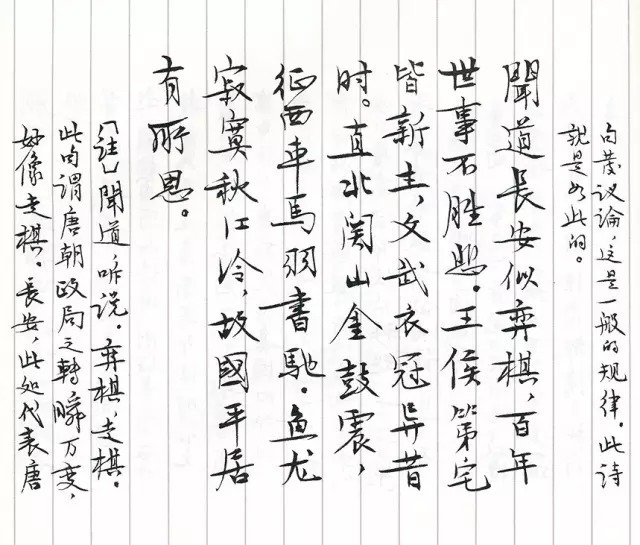 向發议论，这是一般的规律。此诗
就是如此的。
聞道長安似弈棋，百年
世事不勝悲。王侯第宅
皆新主，文武衣冠异昔
时。直北関山金鼓震，
征西車馬羽書馳。鱼龙
寂寞秋江冷，故國平居
有所思。
「註」聞道，听说。弈棋，走棋。
此句谓唐朝政局之轉瞬万变，
好像走棋。長安，此处代表唐